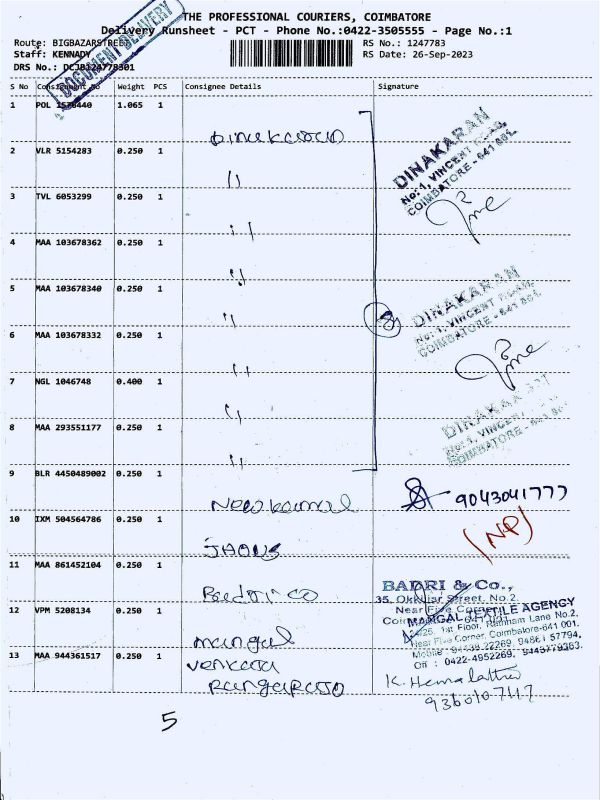 THE PROFESSIONAL COURIERS, COIMBATORE
Delivery Runsheet - PCT - Phone No.:0422-3505555 - Page No.:1
Route: BIGBAZARSTREET RS No.: 1247783
Staff: KENNADY RS Date: 26-Sep-2023
DRS No.:
DOCUMENT DELIVERY
S No Consignment No Weight PCS Consignee Details Signature
1 POL 1.065 1 Dinakaran
2 VLR 5154283 0.250 1 "
3 TVL 6053299 0.250 1 "
4 MAA 103678362 0.250 1 "
5 MAA 103678340 0.250 1 "
6 MAA 103678332 0.250 1 "
7 NGL 1046748 0.400 1 "
8 MAA 293551177 0.250 1 "
8
DINAKARAN
No: 1, VINCENT ROAD,
COIMBATORE - 641 001.
DINAKARAN
No: 1, VINCENT ROAD,
COIMBATORE - 641 001.
DINAKARAN
No: 1, VINCENT
COIMBATORE - 641
9 BLR 4450489002 0.250 1 New kamal 9043041777
10 IXM 504564786 0.250 1 (NP)
11 MAA 861452104 0.250 1 Badri co
BADRI & Co.,
35, Okkiliar Street, No.2,
Near Five Corner
12 VPM 5208134 0.250 1 mangal
MANGAL TEXTILE AGENCY
1st Floor, Rathnam Lane No.2,
Near Five Corner, Coimbatore-641 001.
Mobile : 94438 22269, 94861 57794,
Off : 0422-4952269,
13 MAA 944361517 0.250 1 venkata
Rangaraso
K. Hemalatha
9360107117
5